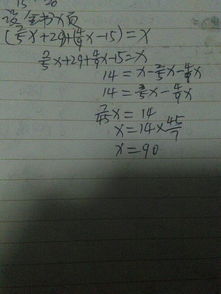 15 20
设全书x页
(2/5x+29)+(4/9x-15)=x
2/5x+29+4/9x-15=x
14=x-2/5x-4/9x
14=3/5x-4/9x
7/45x=14
x=14×45/7
x=90